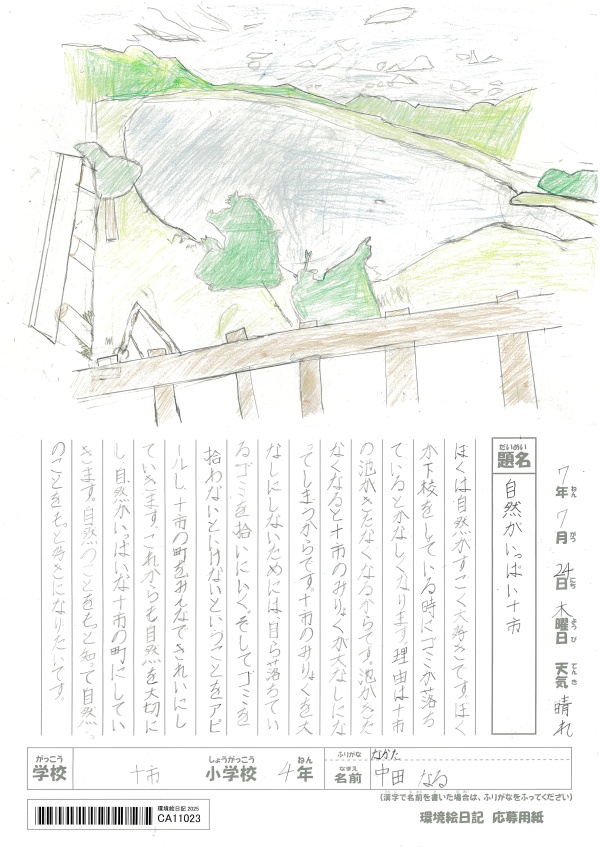 7年7月24日木曜日 天気 晴れ
ねん がつ にち ようび てんき
だいめい
題名
自然がいっぱい十市
ぼくは自然がすごく大好きです。ぼく
が下校をしている時にゴミが落ち
ているとかなしくなります。理由は十市
の池がきたなくなるからです。池がきた
なくなると十市のみりょくが大なしにな
ってしまうからです。十市のみりょくを大
なしにしないためには、自ら落ちてい
るゴミを拾いにいく。そしてゴミを
拾わないといけないということをアピ
ールし、十市の町をみんなできれいにし
ていきます。これからも自然を大切に
し、自然がいっぱいな十市の町にしてい
きます。自然のことをもっと知って自然
のことをもっと好きになりたいです。
がっこう しょうがっこう ねん
学校 十市 小学校 4年
ふりがな なかた
なまえ
名前 中田 なる
(漢字で名前を書いた場合は、ふりがなをふってください)
環境絵日記 2025
CA11023
環境絵日記 応募用紙